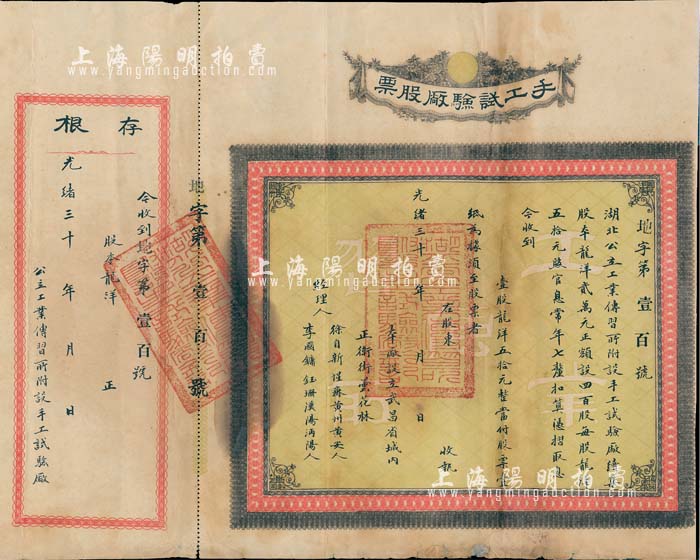 手工試驗廠股票
地字第壹百號
湖北公立工業傳習所附設手工試驗廠
股本龍洋貳萬元正額設四百股每股龍洋
五拾元官息常年七釐扣算憑摺取
今收到
壹股龍洋五拾元整當付股票壹
紙為據須至股票者
在股東
收執
光緒三十年月日
本廠設立武昌省城內
正街衛雲化林
經理人
徐自新
李國鏞
地字第壹百號
存根
今收到地字第壹百號
股本龍洋
正
光緒三十年月日
公立工業傳習所附設手工試驗廠
上海陽明拍賣
www.yangmingauction.com
上海陽明拍賣
www.yangmingauction.com
上海陽明拍賣
www.yangmingauction.com